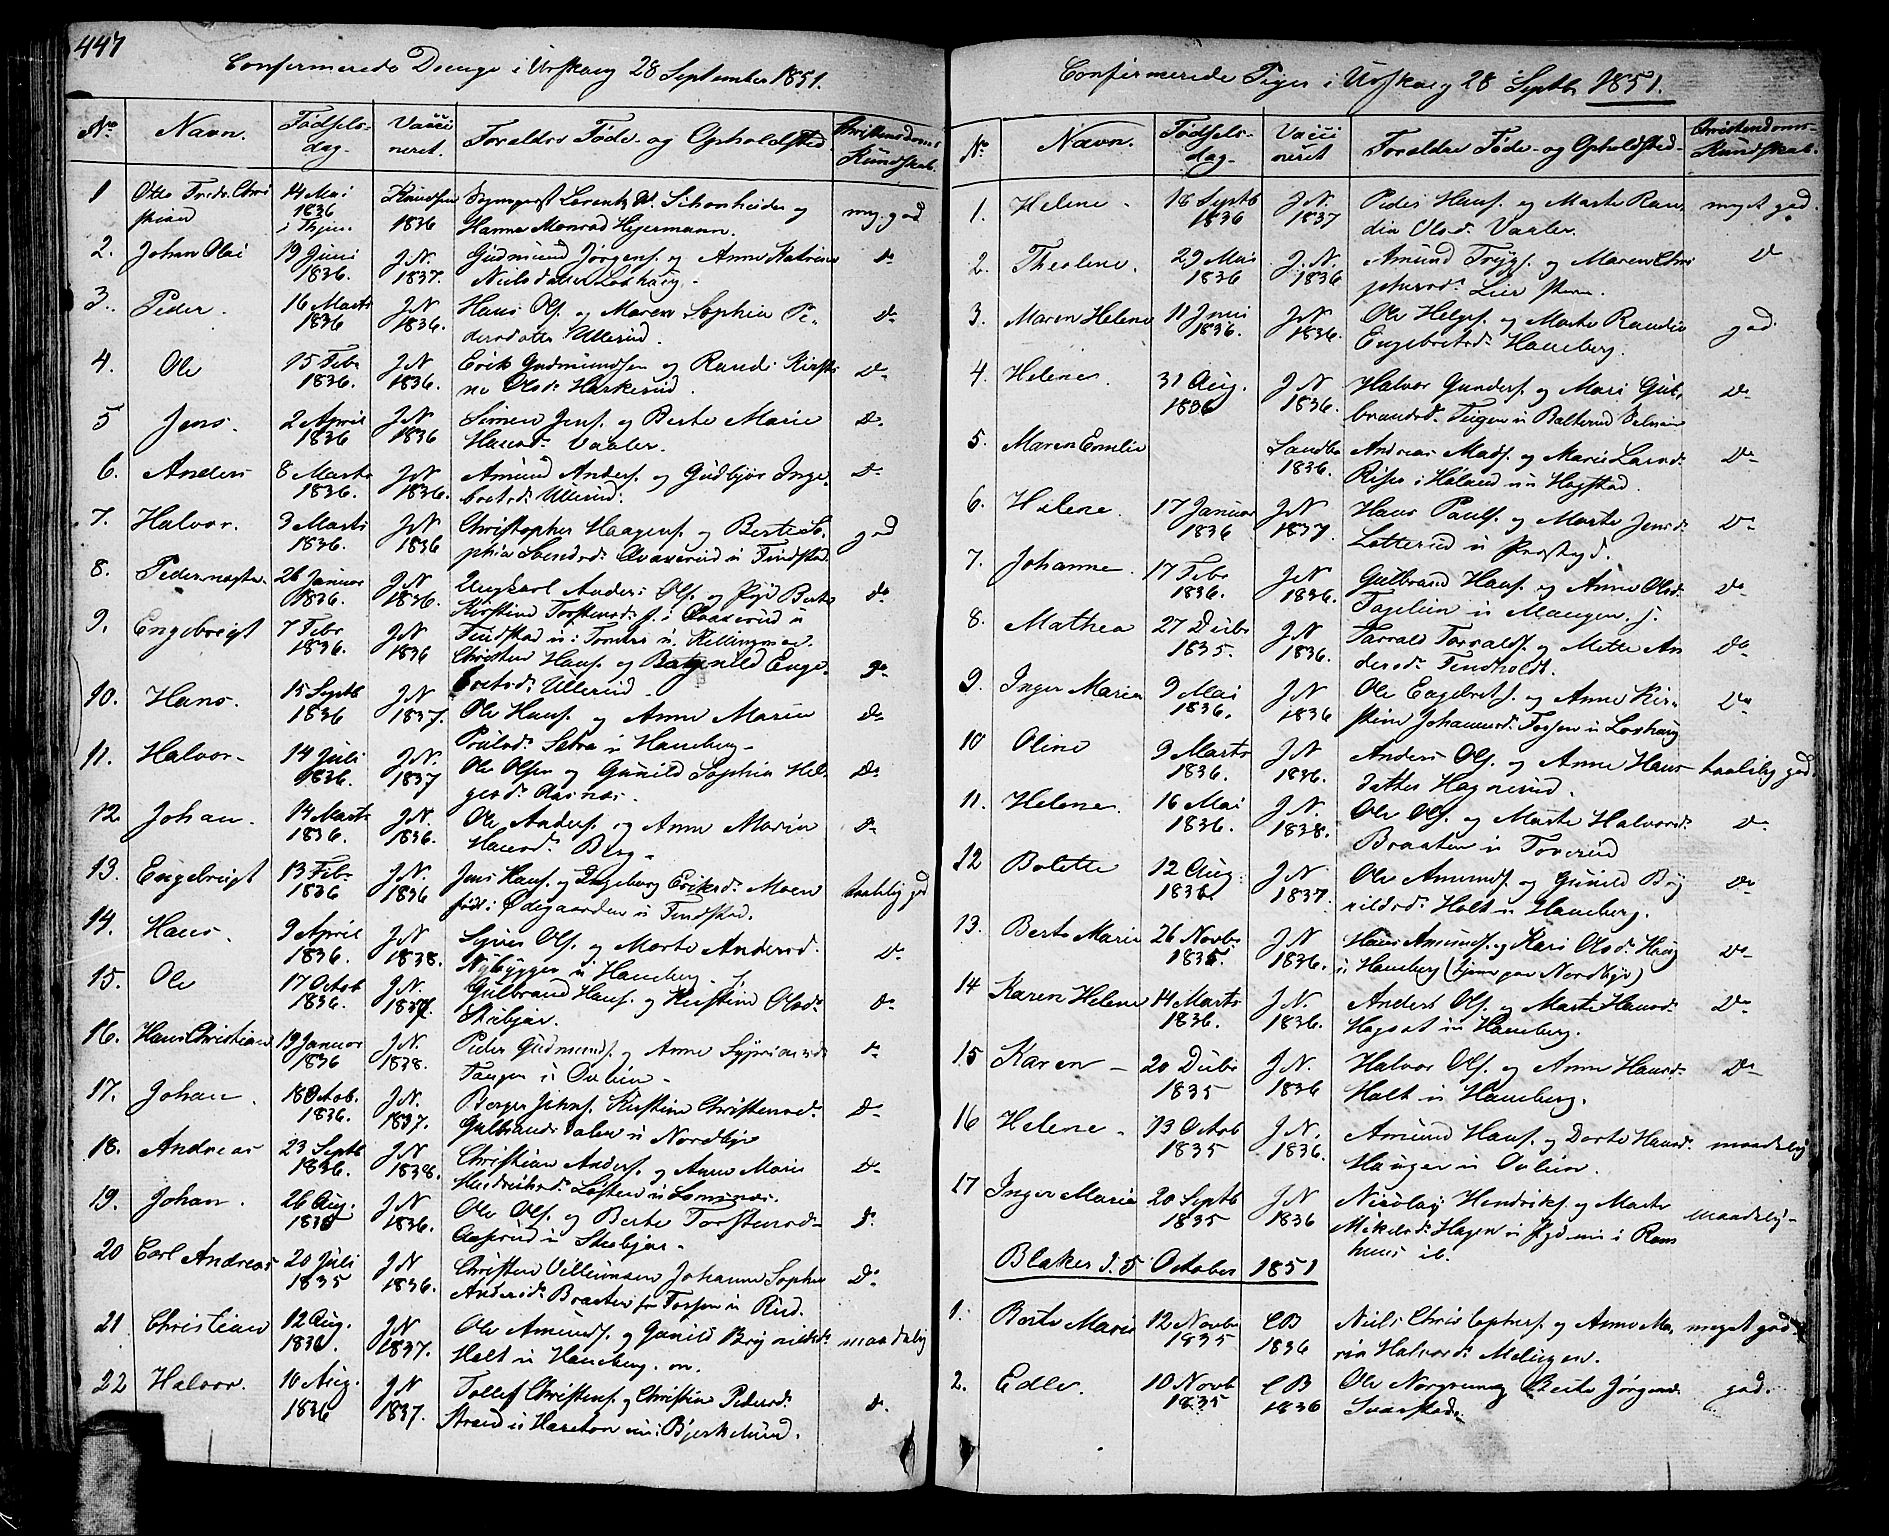 447
Confirmerede Drenge i Urskoug 28 September 1851.
No Navn. Fødsels-dag. Vacci neret. Foræld​re Føde- og Opholdsted. Christendoms Kundskab.
1 Otto Fredr. Chri stian 14 Mai 1836 Knudsen 1836 Lorentz og Hanne Monrad Hejermann. mg. god
2. Johan Olai 19 Juni 1836. J.N. 1837. Gudmund Jørgens. og Anne Katrine Nielsdatter Loshaug. Do
3. Peder. 16 Marts 1836 J.N 1836. Hans Ols. og Maren Sophia Pe- dersdatter Ullerud. Do
4. Ole 15 Febr 1836. J.N 1836. Erik Gudmundsen og Randi Kirsti ne Olsd. Harkerud. Do
5 Jens. 2 April 1836 J.N. 1836 Simen Jens. og Berte Marie Hansd. Vaaler. Do
6. Anders 8 Marts 1836. J.N. 1836. Amund Anders. og Gudbjør Inge- bretsd. Ullerud. Do
7. Halvor. 3 Marts 1836. J.N 1836 Christopher Haagens. og Berte So- phia Svendsd. Qvaxerud u Findstad. god
8. Peder 26 Januar 1836. J.N. 1836. Ungkarl Anders Ols. og Pige Berte Kirstine Torstensd. f. i Qvaxerud u Findstad Do
9. Engebregt 7 Febr 1836. J.N 1836 Christen Hans. og Enge- bretsd. Ullerud. Do
10. Hans. 15 Septb 1836 J.N. 1837. Ole Hans. og Anne Maria Poulsd. Setra u Haneberg. Do
11. Halvor- 14 Juli 1836. J.N. 1837 Ole Olsen og Gunild Sophia Hel- gesd. Aasnæs. Do
12 Johan. 14 Marts 1836. J.N. 1836. Ole Anders. og Anne Maria Hansd. Berg. Do
13. Engebregt 13 Feb. 1836 J.N. 1836 Jens Hans. og Ingeborg Eriksd. Moen født i Ødegaarden u Findstad. taalelig god
14. Hans. 9 April 1836. J.N. 1838. Syver Ols. og Marte Andersd. Nybygger u Haneberg Do
15. Ole 17 Octob 1836. J.N. 1837. Gulbrand Hans. og Kirstine Olsd. Skibjør. Do
16. Hans Christian 19 Januar 1836 J.N. 1838. Peder Gudmunds. og Anne Tangen i Ovlien. Do
17. Johan. 18 Octob. 1836. J.N. 1837. Borger Johns. Kirstine Christensd. Gulbrandsdalen u Nordbye Do
18. Andreas 23 Septb 1836. J.N 1838. Christian Anders. og Anne Marie Do
19. Johan. 26 Aug. 1836 J.N 1836. Ole Ols. og Berte Torstensd. Aaserud u Skibjør. Do
20 Carl Andreas 20 Juli 1835 J.N 1836. Christen Villumsen Johanne Sophie Andersd. Braaten Do
21 Christian 12 Aug. 1836 J.N 1837. Ole Amunds. og Gunild Brynildsd. Holt u Haneberg. maadelig
22 Halvor. 10 Aug. 1836 J.N 1837. Tollef Christens. og Christine Pedersd. Strand u Hareton nu i Bjerkelund. Do
Confirmerede Piger i Urskoug 28 Septb. 1851.
No Navn. Fødsels-dag. Vacci neret Forældre Føde- og Opholdsted- Christendoms- Kundskab.
1. Helene- 16 Septb 1836 J.N. 1837 Peder Hans. og Marte Ran- dia Olsd. Vaaler. meget god.
2. Theoline. 29 Mai 1836 J.N. 1836 Amund Trygs. og Maren Chri stophersd. Lier Do
3. Maren Helene 11 Juni 1836. J.N 1836. Ole Helges. og Marte Randia Engebretsd. Haneberg. god.
4. Helene. 31 Aug. 1836 J.N 1836. Halvor Gunders. og Mari Gul- brandsd. Teigen u Balterud Do
5. Maren Emilie Sandbo 1836. Andreas Mads. og Marie Larsd. i Høland u Hogstad. Do
6. Helene. 17 Januar 1836 J.N 1837. Hans Pauls. og Marte Jensd. Lotterud u Præstegd. Do
7. Johanne. 17 Febr 1836. J.N 1836. Gulbrand Hans. og Anne Olsd. u Mangen. Do
8. Mathea 27 Decbr 1835. J.N 1836. Tarrald Tarralds. og Mette An dersd. Findholdt. Do
9. Inger Maria 9 Mai 1836. J.N 1836 Ole Engebrets. og Anne Kir- stine Johannesd. Fossen u Loshaug Do
10 Oline 9 Marts 1836. J.N 1836. Anders Ols. og Anne Hans datter Hagnerud. taalelig god.
11. Helene. 16 Mai 1836. J.N. 1838. Ole Ols. og Marte Halvorsd. Braaten u Toverud Do
12 Bolette 12 Aug. 1836. J.N 1837. Ole Amunds. og Gunild Bry nildsd. Holt u Haneberg. Do
13. Berte Marie 26 Novbr 1835. J.N 1836. Hans Amunds. og Kari Olsd. Haug u Haneberg (tjener paa Nordbye) Do
14 Karen Helene 14 Marts 1836. J.N. 1836. Anders Ols. og Marte Hansd. Hogset u Haneberg. Do
15 Karen- 20 Decbr 1835 J.N. 1836 Halvor Ols. og Anne Hansd. Holt u Haneberg. Do
16 Helene- 13 Octob 1835 J.N. 1836. Amund Hans. og Dorte Hansd. Hauger u Ovlien. maadelig
17 Inger Maria 20 Septb 1835 J.N 1836 Nicolay Hendriks. og Marte Mikelsd. Hagen maadelig-
Blaker d. 5 October 1851
1. Berte Marie 12 Novbr 1835 CB 1836 Niels Christophers. og Anne Ma- ria Halvorsd. Melingen. meget god
2. Edle. 10 Novb 1835 CB 1836 Ole Norgren og Berte Jørgensd. Svarstad. god.